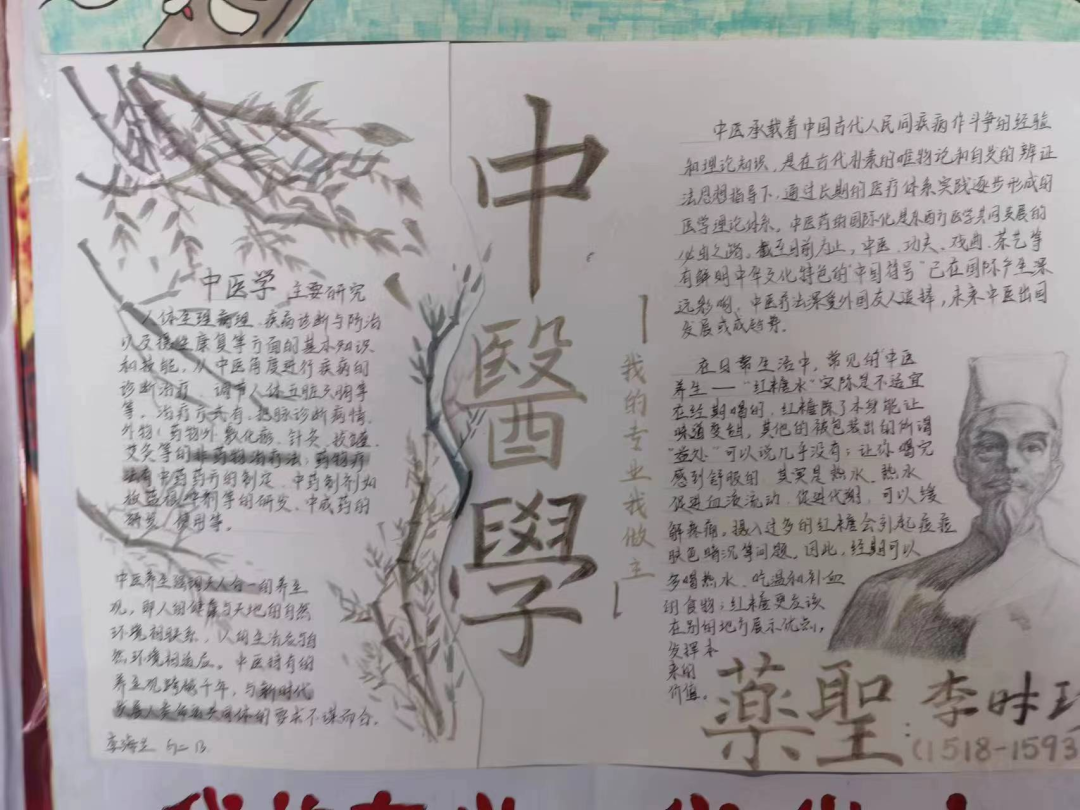 中医学 主要研究
人体生理病理、疾病诊断与防治
以及摄生康复等方面的基本知识
和技能,从中医角度进行疾病的
诊断治疗、调节人体五脏失调等
等。治疗方式有:把脉诊断病情、
外物(药物外敷化瘀、针灸、拔罐、
艾灸等的非药物治疗法;药物疗
法有中药药方的制定、中药制剂如
等的研究、中成药的
研发、使用等。
中医养生强调天人合一的养生
观,即人的健康与天地的自然
环境相联系,人的生活应与自
然环境相适应。中医特有的
养生观跨越千年,与新时代
的要求不谋而合。
中醫學
我的专业我做主
中医承载着中国古代人民同疾病作斗争的经验
和理论知识,是在古代朴素的唯物论和自发的辨证
法思想指导下,通过长期的医疗体系实践逐步形成的
医学理论体系。中医药的国际化是东西方医学共同发展的
必由之路。截至目前为止,中医、功夫、戏曲、茶艺等
有鲜明中华文化特色的“中国符号”已在国际产生深
远影响。中医疗法深受外国友人追捧,未来中医出国
发展或成趋势。
在日常生活中,常见的“中医
养生——“红糖水”实际是不适宜
在经期喝的,红糖除了本身能让
味道变甜,其他的被包装出的所谓
“益处”可以说几乎没有;让你喝完
感到舒服的,其实是热水。热水
促进血液流动、促进代谢,可以缓
解疼痛。摄入过多的红糖会引起痘痘
肤色暗沉等问题。因此,经期可以
多喝热水、吃温和补血
的食物;红糖更应该
在别的地方展示优点,
发挥本
来的
价值。
藥聖:李时珍
(1518-1593